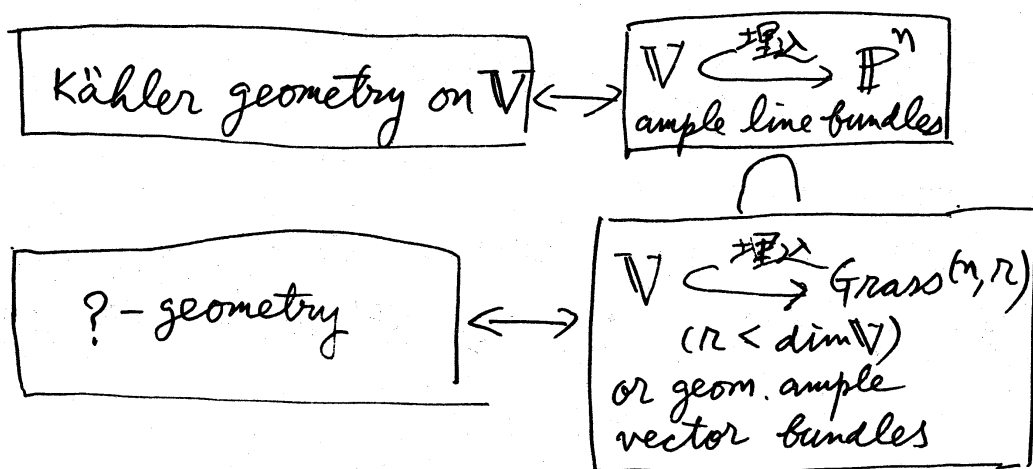 Kähler geometry on 𝕍 ↔
𝕍 埋込 ℙⁿ
ample line bundles
∩
? - geometry ↔
𝕍 埋込 Grass(n, r)
(r < dim 𝕍)
or geom. ample
vector bundles